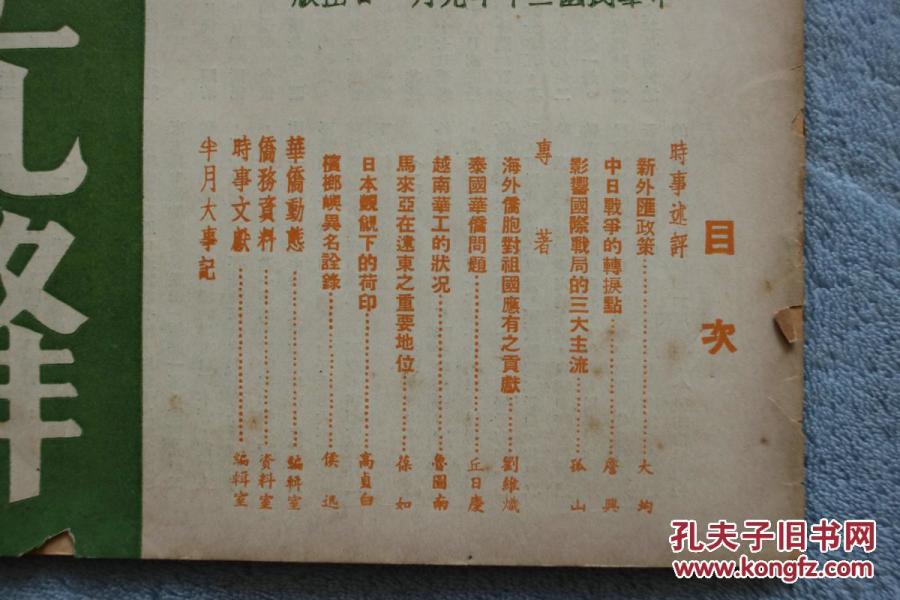 中華民國三十年九月一日出版
目次
時事述評
新外匯政策……大均
中日戰爭的轉捩點……詹興
影響國際戰局的三大主流……孤山
專著
海外僑胞對祖國應有之貢獻……劉維熾
泰國華僑問題……丘日慶
越南華工的狀况……魯圖南
馬來亞在遠東之重要地位……葆如
日本覬覦下的荷印……高貞白
檳榔嶼異名詮錄……侯迅
華僑動態……編輯室
僑務資料……資料室
時事文獻……編輯室
半月大事記
孔夫子旧书网
www.kongfz.com